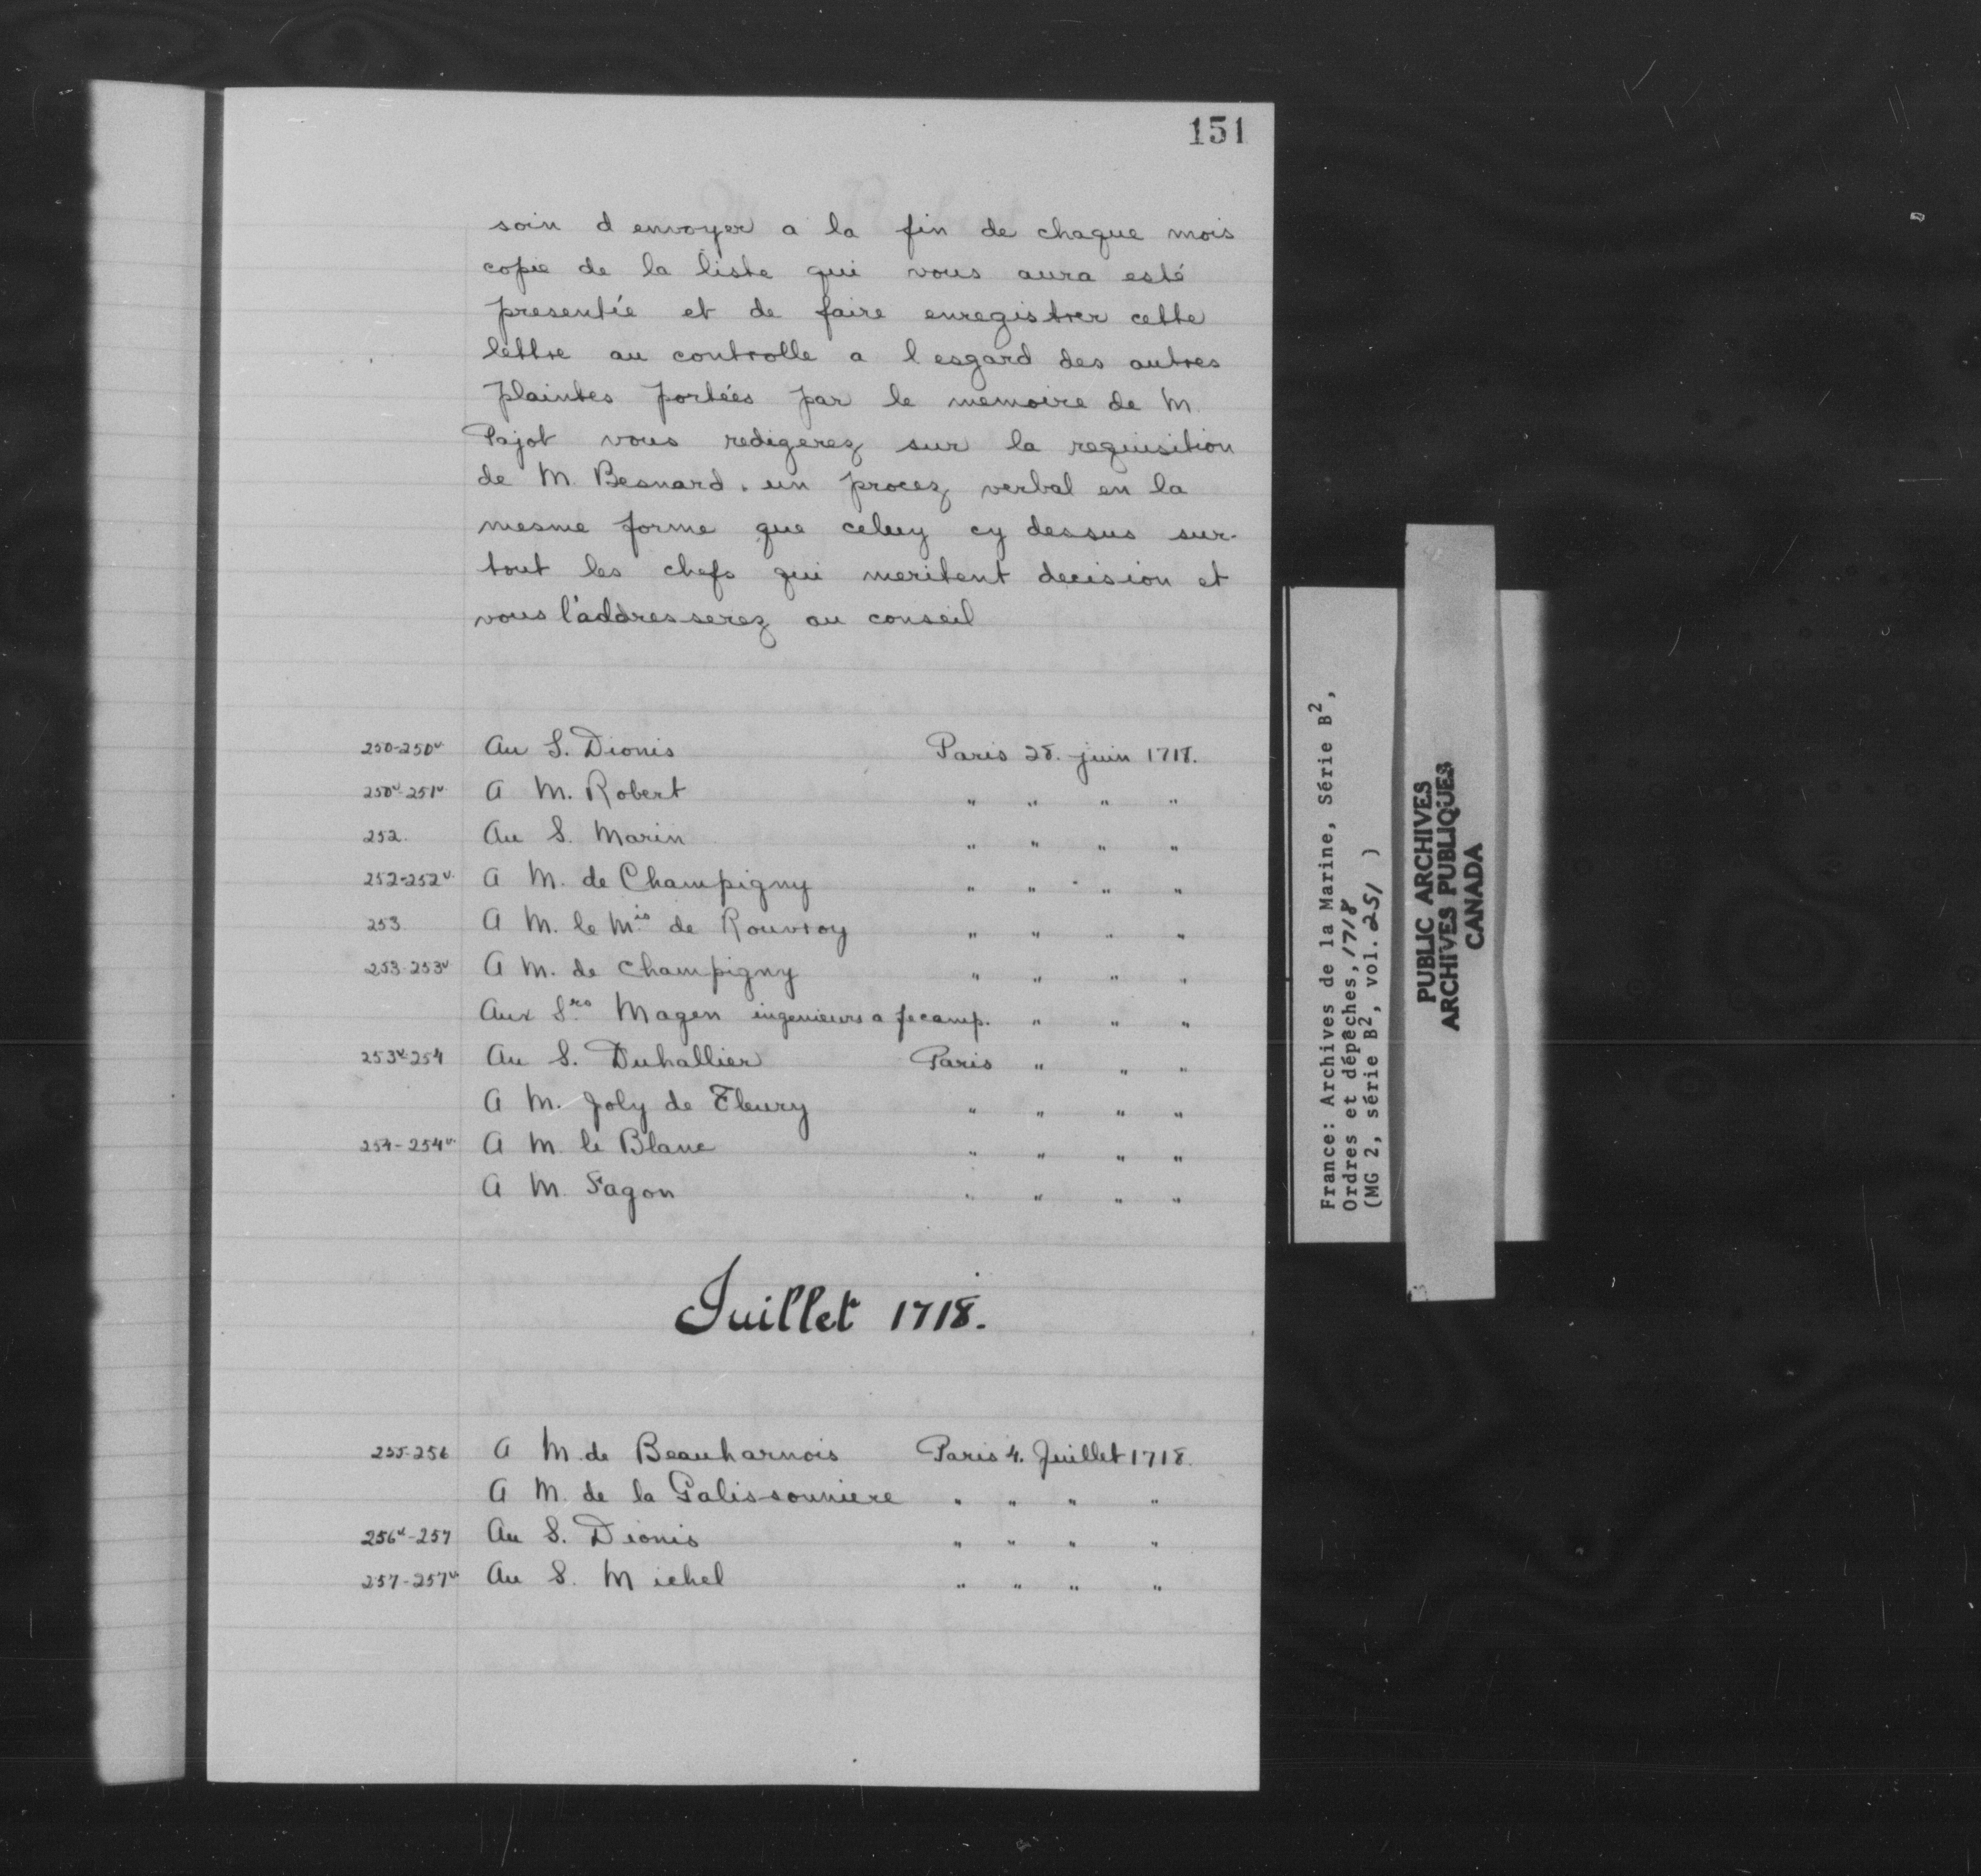 151
soin d envoyer a la fin de chaque mois
copie de la liste qui vous aura esté
presentée et de faire enregistrer cette
lettre au controlle a l esgard des autres
plaintes portées par le memoire de M.
Pajot vous redigerez sur la requisition
de M. Besnard. un procez verbal en la
mesme forme que celuy cy dessus sur-
tout les chefs qui meritent decision et
vous l'addresserez au conseil
250-250v Au S. Dionis Paris 28. juin 1718.
250v-251v A M. Robert " " " "
252. Au S. Marin " " " "
252-252v A M. de Champigny " " " "
253 A M. le Mis de Rouvroy " " " "
253-253v A M. de Champigny " " " "
Aux Srs Magen ingenieurs a fecamp. " " "
253v-254 Au S. Duhallier Paris " " "
A M. Joly de Fleury " " " "
254-254v A M. le Blanc " " " "
A M. Fagon " " " "
Juillet 1718.
255-256 A M. de Beauharnois Paris 4. Juillet 1718.
A M. de la Galissonniere " " " "
256v-257 Au S. Dionis " " " "
257-257v Au S. Michel " " " "
France: Archives de la Marine, Série B2,
Ordres et dépêches, 1718
(MG 2, série B2, vol. 251 )
PUBLIC ARCHIVES
ARCHIVES PUBLIQUES
CANADA